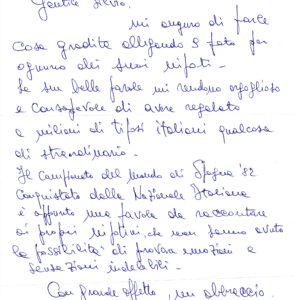 Gentile
mi auguro di farle
cosa gradita allegando 3 foto per
ognuno dei suoi nipoti.
Le sue belle parole mi rendono orgoglioso
e consapevole di avere regalato
a milioni di tifosi italiani qualcosa
di straordinario.
Il Campionato del Mondo di Spagna '82
conquistato dalla Nazionale Italiana
è appunto una favola da raccontare
ai propri nipotini, che non hanno avuto
la possibilità di provare emozioni e
sensazioni indelebili.
Con grande affetto, un abbraccio